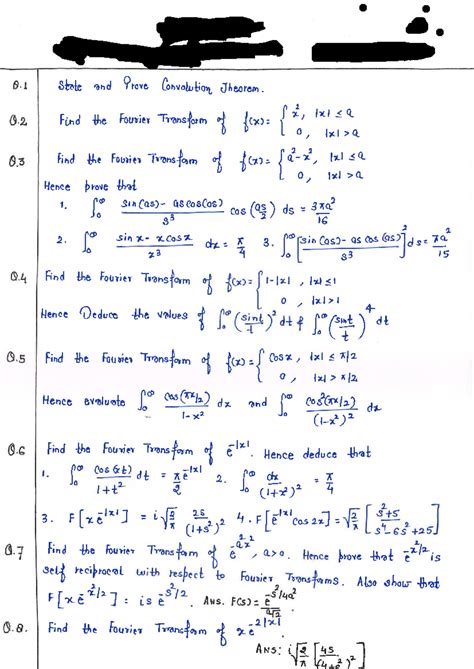 Q.1 State and Prove Convolution Theorem.
Q.2 Find the Fourier Transform of f(x) = { x², |x| ≤ a
0, |x| > a
Q.3 Find the Fourier Transform of f(x) = { a²-x², |x| ≤ a
0, |x| > a
Hence prove that
1. ∫₀^∞ (sin(as) - as cos(as))/s³ cos(as/2) ds = 3πa²/16
2. ∫₀^∞ (sin x - x cos x)/x³ dx = π/4 3. ∫₀^∞ [(sin(as) - as cos(as))/s³]² ds = πa²/15
Q.4 Find the Fourier Transform of f(x) = { 1-|x|, |x| ≤ 1
0, |x| > 1
Hence Deduce the values of ∫₀^∞ (sint/t)² dt & ∫₀^∞ (sint/t)⁴ dt
Q.5 Find the Fourier Transform of f(x) = { cosx, |x| ≤ π/2
0, |x| > π/2
Hence evaluate ∫₀^∞ cos(πx/2)/(1-x²) dx and ∫₀^∞ cos²(πx/2)/(1-x²)² dx
Q.6 Find the Fourier Transform of e^-|x|. Hence deduce that
1. ∫₀^∞ cos(xt)/(1+t²) dt = π/2 e^-|x| 2. ∫₀^∞ dx/(1+x²)² = π/4
3. F[x e^-|x|] = i√(2/π) 2s/(1+s²)² 4. F[e^-|x| cos2x] = √(2/π) [(s²+5)/(s⁴-6s²+25)]
Q.7 Find the Fourier Transform of e^-ax², a>0. Hence prove that e^-x²/2 is
self reciprocal with respect to Fourier Transforms. Also show that
F[x e^-x²/2] = is e^-s²/2. Ans. F(s) = e^-s²/4a /√2
Q.8. Find the Fourier Transform of x e^-2|x|
Ans: i√(2/π) [4s/(4+s²)²]